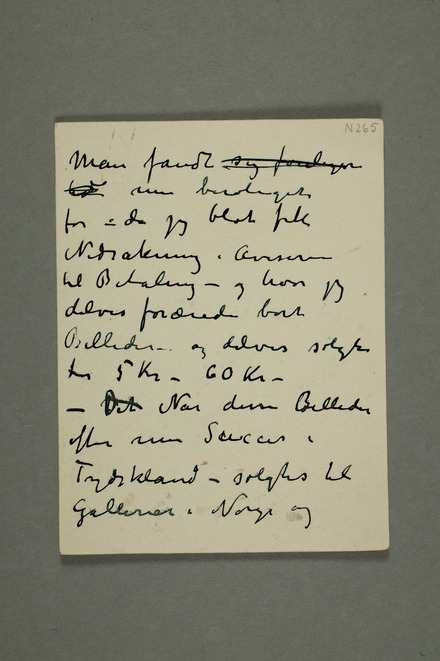 N265
Man fandt sig fordeyer
mu berøliget
for – da jeg blot fik
Nedrakning i Aviserne
til Betaling – og hvor jeg
delvis forærede bort
Billeder – og delvis solgte
for 5 Kr – 60 Kr –
– Det Når disse Billeder
efter min Succes i
Tydskland – solgtes til
Gallerier i Norge og